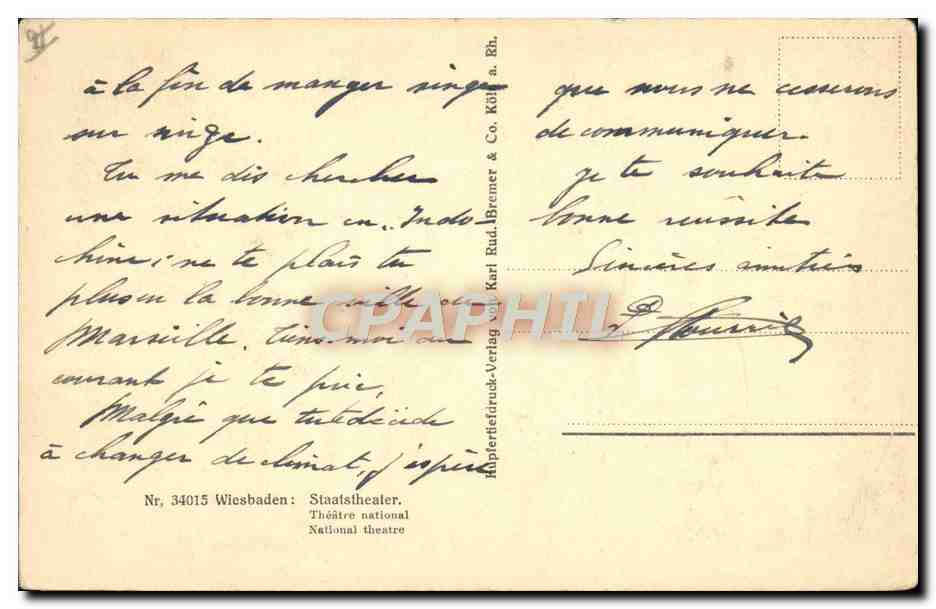 à la fin de manger singe
sur singe.
Tu me dis chercher
une situation en "Indo-
chine ; ne te plais tu
plus en la bonne ville de
Marseille. Tiens moi au
courant je te prie,
Malgré que tu te décide
à changer de climat, j'espère
que nous ne cesserons
de communiquer.
je te souhaite
bonne réussite
Sincères amitiés
Kupfertiefdruck-Verlag von Karl Rud. Bremer & Co. Köln a. Rh.
CPAPHIL
Nr, 34015 Wiesbaden: Staatstheater.
Théâtre national
National theatre